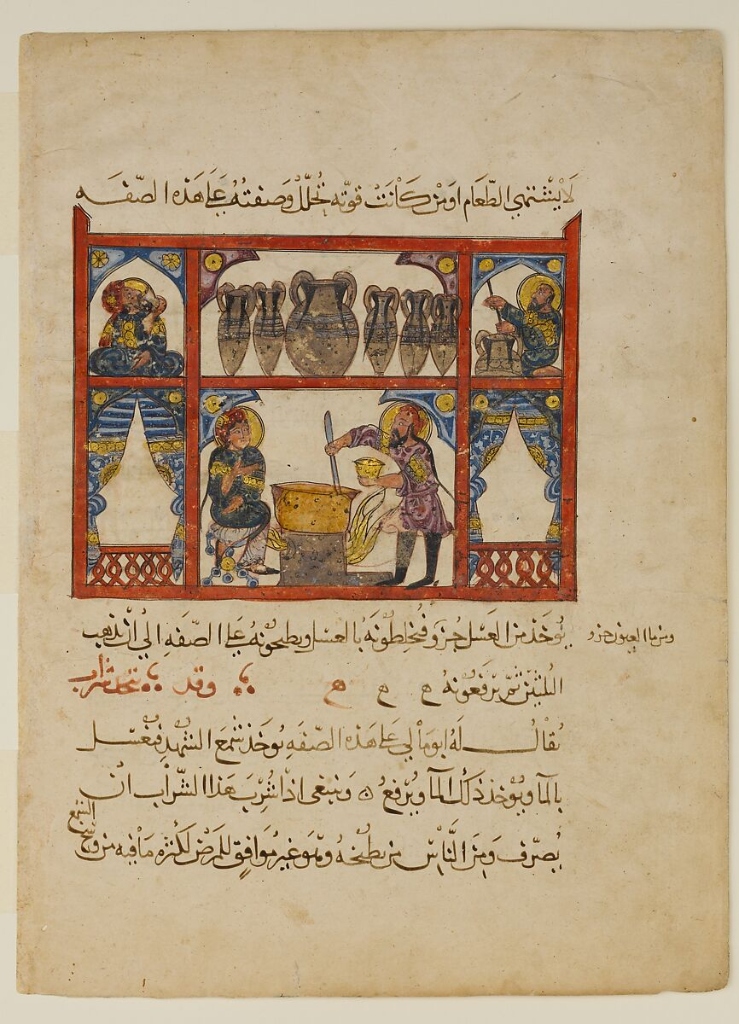 لا يشتهي الطعام او من كانت قوته تخلل وصفته على هذه الصفه
يوخذ من العسل جزو فيخلطونه بالعسل ويطبخونه على الصفه الى ان يذهب
ومن ما العيون جزو
الثلثين ثم يرفعونه وقد يتخذ شراب
يقال له ابومالي على هذه الصفه يوخذ شمع الشهد فيغسل
بالما ويوخذ ذلك الما ويرفع وينبغي اذا شرب هذا الشراب ان
يصرف ومن الناس من يطبخه وهو غير موافق للمرض لكثره ما فيه من وسخ
الشمع